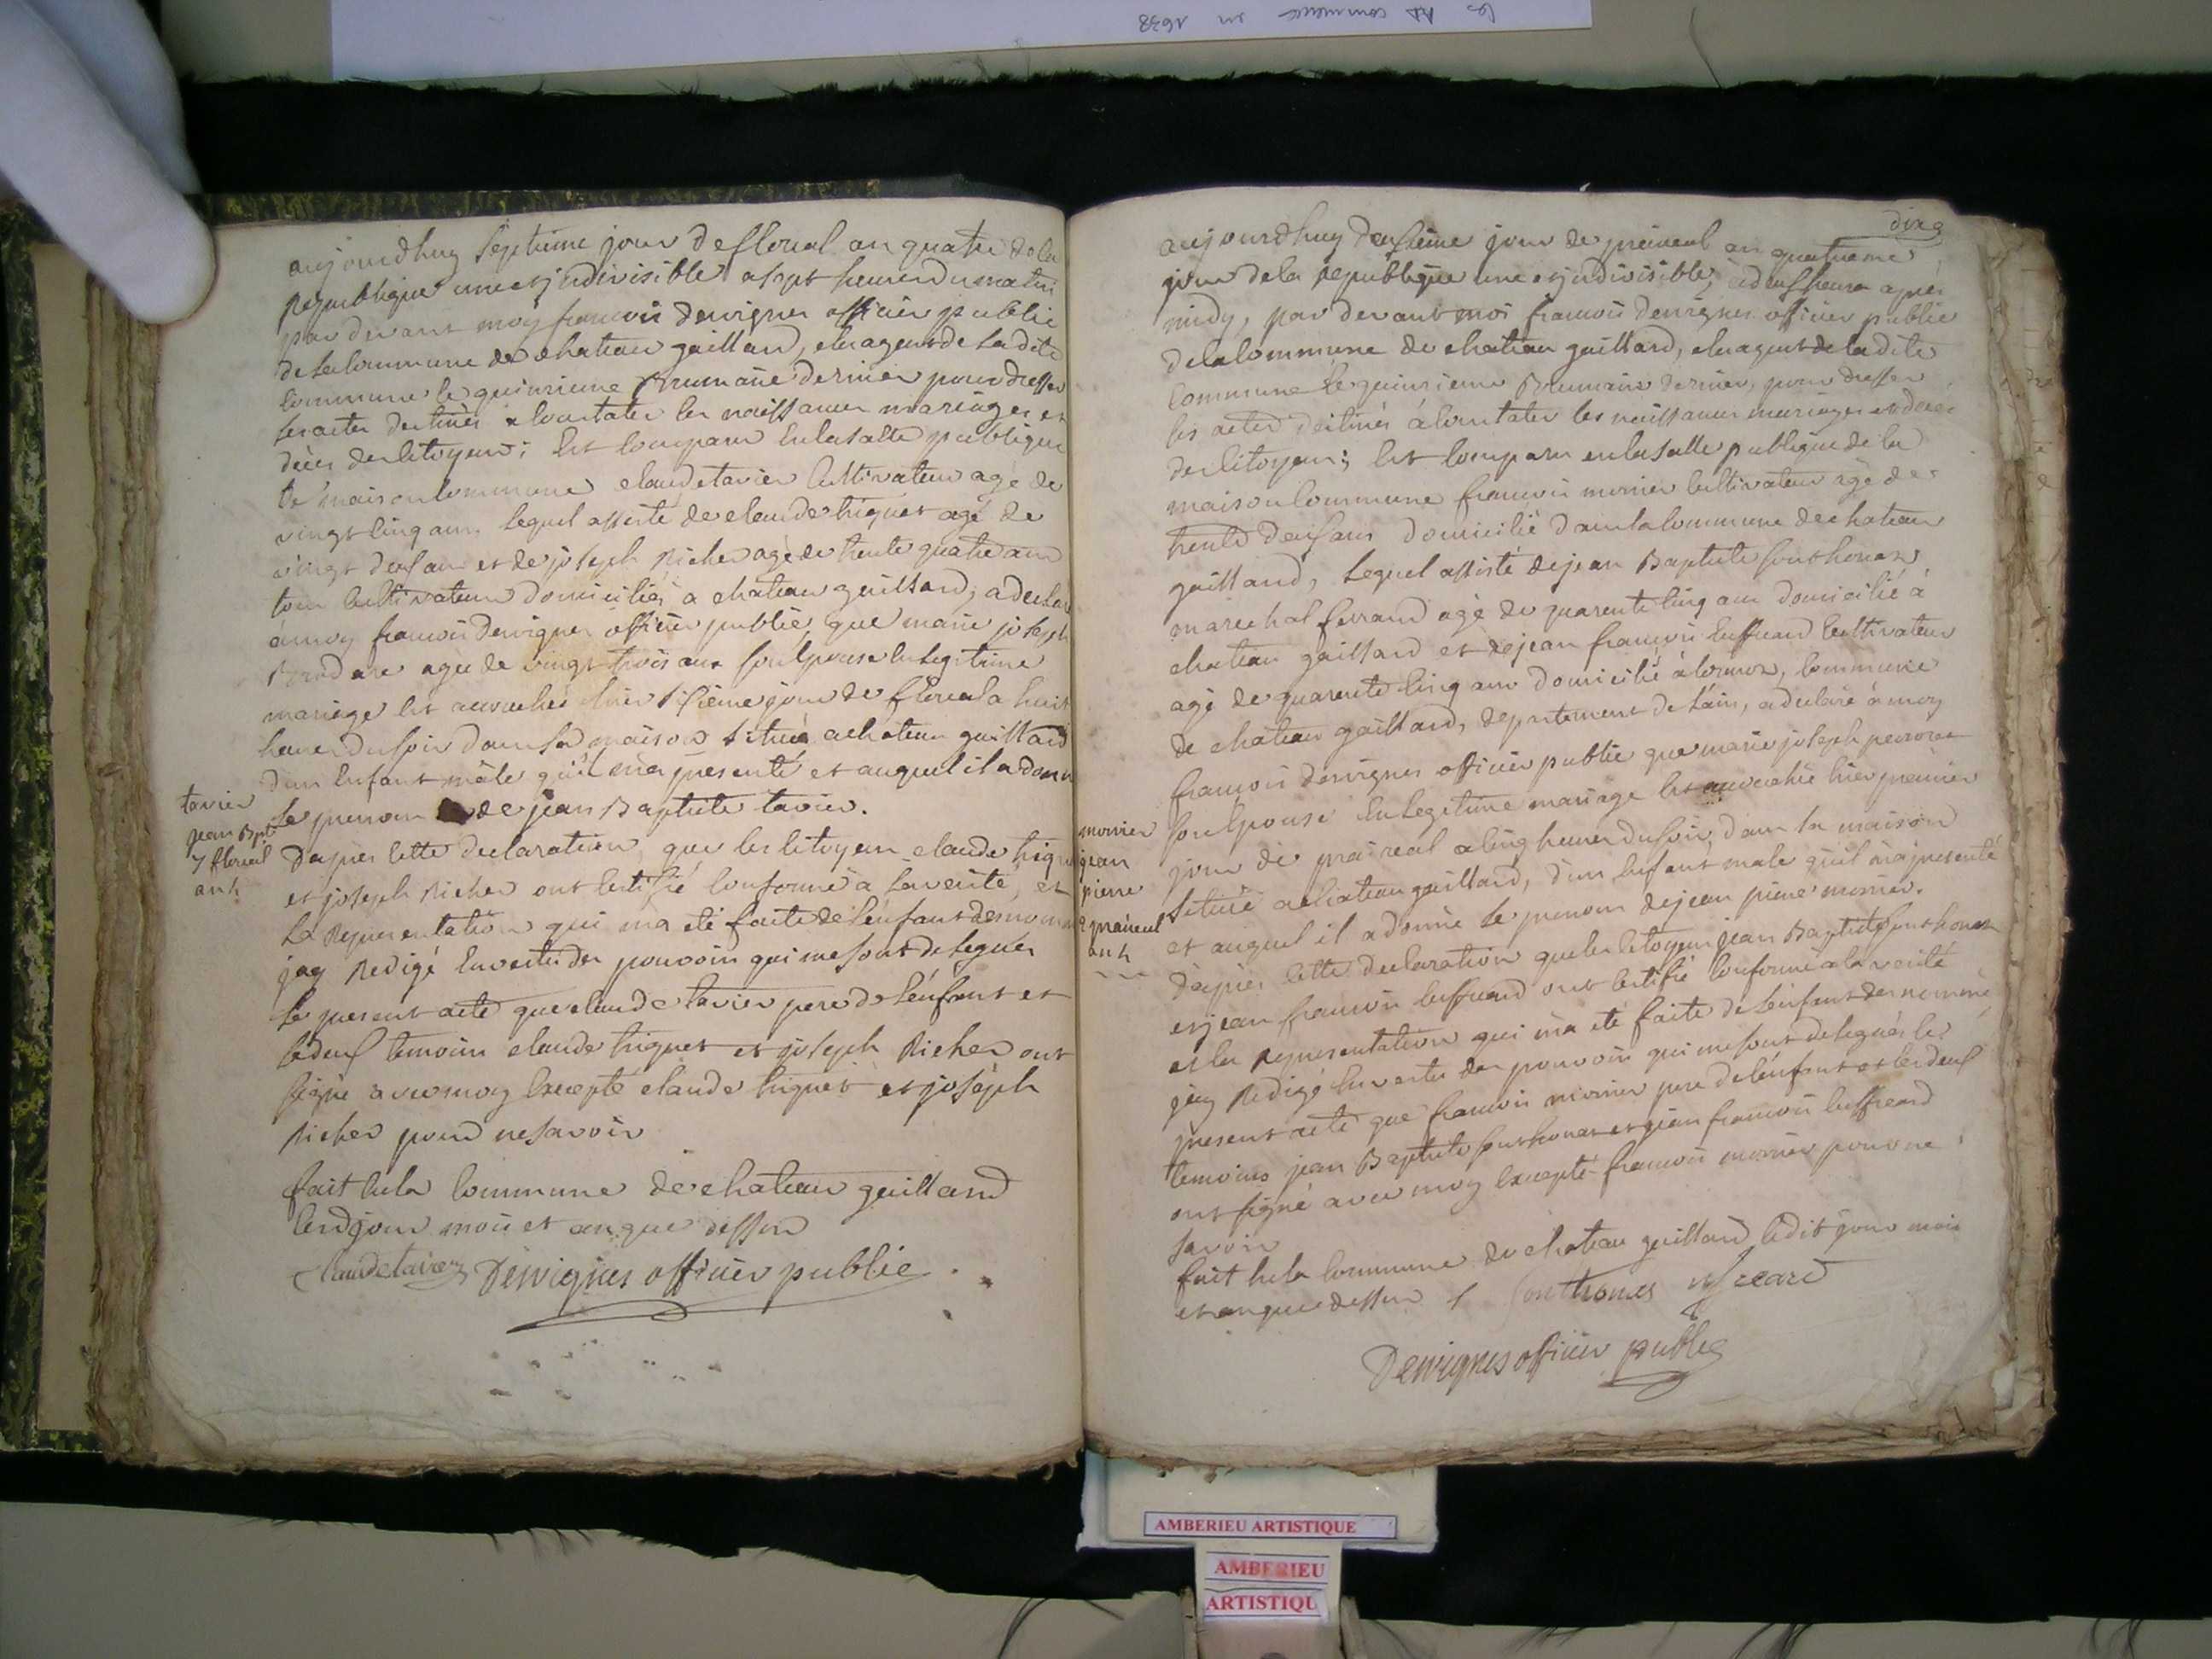 Les AB commence en 1638
aujourdhuy septieme jour de floreal an quatre de la
republique une et jndivisible a sept heures du matin
par devant moy francois dervignes officier public
de la commune de chateau gaillard, elu agent de la dite
commune le quinzieme Brumaire dernier pour dresser
les actes destinés a constater les naissances mariages et
décès des citoyens; est comparu en la salle publique
de maison commune claude tavier cultivateur agé de
vingt cinq ans lequel assisté de claude triquet agé de
vingt deux ans et de joseph Richer agé de trente quatre ans
tous cultivateurs domiciliés a chateau gaillard; a declaré
à moy francois dervignes officier public, que marie joseph
agée de vingt trois ans son epouse en legitime
mariage est accouchée hier sixieme jour de floreal a huit
heures du soir dans sa maison située a chateau gaillard
dun enfant mâle qu'il m'a presenté et auquel il a donné
le prenom de jean Baptiste tavier.
tavier
jean Bpt
7 floreal
an 4
Daprès cette declaration que les citoyens claude triquet
et joseph Richer ont certifié conforme a la verité, et
la representation qui ma été faite de l'enfant denommé
jay Redigé en vertu des pouvoirs qui me sont delegués
le present acte que claude tavier pere de l'enfant et
les deux temoins claude triquet et joseph Richer ont
signé avec moy Excepté claude triquet et joseph
Richer pour ne savoir
fait en la commune de chateau gaillard
les djour mois et an que dessus
Claude tavier Dervignes officier public
aujourdhuy deuxieme jour de preireal an quatrieme
jour de la republique une et jndivisible, a deux heures aprés
midy, par devant moi francois dervignes officier public
de la commune de chateau gaillard, elu agent de la dite
commune le quinzieme Brumaire dernier, pour dresser
les actes destinés à constater les naissances mariages et decés
des citoyens; est comparu en la salle publique de la
maison commune francois monier cultivateur agé de
trente deux ans domicilié dans la commune de chateau
gaillard, lequel assisté de jean Baptiste Southonax
marechal ferrand agé de quarente cinq ans domicilié à
chateau gaillard et de jean francois cultivateur
agé de quarente cinq ans domicilié à cormoz, commune
de chateau gaillard, departement de l'ain, a declaré à moy
francois dervignes officier public que marie joseph
son epouse en legitime mariage est accouchée hier premier
jour de praireal a cinq heures du soir, dans sa maison
située a chateau gaillard, d'un enfant male qu'il m'a presenté
et auquel il a donné le prenom de jean pierre monier.
monier
jean
pierre
2 praireal
an 4
Daprès cette declaration que les citoyens jean Baptiste Southonax
et jean francois ont certifié conforme a la verité
et la representation qui m'a été faite de l'enfant denommé
jay Redigé en vertu des pouvoirs qui me sont delegués le
present acte que francois monier pere de l'enfant et les deux
temoins jean Baptiste Southonax et jean francois
ont signé avec moy Excepté francois monier pour ne
savoir
fait en la commune de chateau gaillard ledit jour mois
et an que dessus Southonax
Dervignes officier public
AMBERIEU ARTISTIQUE
AMBERIEU
ARTISTIQU